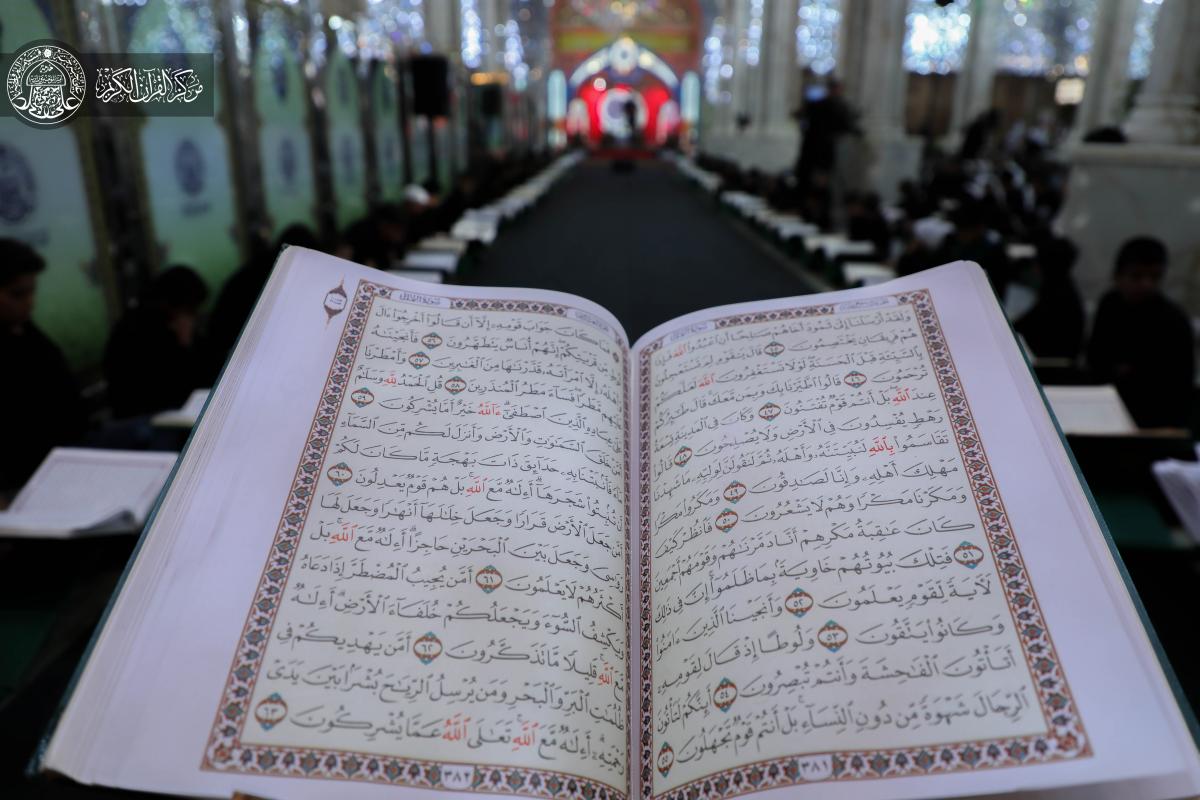 مركز القرآن الكريم
وَلَقَدْ أَرْسَلْنَآ إِلَىٰ ثَمُودَ أَخَاهُمْ صَٰلِحًا أَنِ ٱعْبُدُوا۟ ٱللَّهَ
هُمْ فَرِيقَانِ يَخْتَصِمُونَ ٤٥ قَالَ يَٰقَوْمِ لِمَ تَسْتَعْجِلُونَ
بِٱلسَّيِّئَةِ قَبْلَ ٱلْحَسَنَةِ لَوْلَا تَسْتَغْفِرُونَ ٱللَّهَ لَعَلَّكُمْ
تُرْحَمُونَ ٤٦ قَالُوا۟ ٱطَّيَّرْنَا بِكَ وَبِمَن مَّعَكَ قَالَ طَٰٓئِرُكُمْ
عِندَ ٱللَّهِ بَلْ أَنتُمْ قَوْمٌ تُفْتَنُونَ ٤٧ وَكَانَ فِى ٱلْمَدِينَةِ تِسْعَةُ
رَهْطٍ يُفْسِدُونَ فِى ٱلْأَرْضِ وَلَا يُصْلِحُونَ ٤٨ قَالُوا۟
تَقَاسَمُوا۟ بِٱللَّهِ لَنُبَيِّتَنَّهُۥ وَأَهْلَهُۥ ثُمَّ لَنَقُولَنَّ لِوَلِيِّهِۦ مَا شَهِدْنَا
مَهْلِكَ أَهْلِهِۦ وَإِنَّا لَصَٰدِقُونَ ٤٩ وَمَكَرُوا۟ مَكْرًا
وَمَكَرْنَا مَكْرًا وَهُمْ لَا يَشْعُرُونَ ٥٠ فَٱنظُرْ كَيْفَ
كَانَ عَٰقِبَةُ مَكْرِهِمْ أَنَّا دَمَّرْنَٰهُمْ وَقَوْمَهُمْ أَجْمَعِينَ
٥١ فَتِلْكَ بُيُوتُهُمْ خَاوِيَةًۢ بِمَا ظَلَمُوٓا۟ إِنَّ فِى ذَٰلِكَ
لَءَايَةً لِّقَوْمٍ يَعْلَمُونَ ٥٢ وَأَنجَيْنَا ٱلَّذِينَ ءَامَنُوا۟
وَكَانُوا۟ يَتَّقُونَ ٥٣ وَلُوطًا إِذْ قَالَ لِقَوْمِهِۦٓ
أَتَأْتُونَ ٱلْفَٰحِشَةَ وَأَنتُمْ تُبْصِرُونَ ٥٤ أَئِنَّكُمْ لَتَأْتُونَ
ٱلرِّجَالَ شَهْوَةً مِّن دُونِ ٱلنِّسَآءِ بَلْ أَنتُمْ قَوْمٌ تَجْهَلُونَ ٥٥
٣٨١
سُورَةُ النَّمْلِ
فَمَا كَانَ جَوَابَ قَوْمِهِۦٓ إِلَّآ أَن قَالُوٓا۟ أَخْرِجُوٓا۟ ءَالَ
مِّن قَرْيَتِكُمْ إِنَّهُمْ أُنَاسٌ يَتَطَهَّرُونَ ٥٦ فَأَنجَيْنَٰهُ
إِلَّا ٱمْرَأَتَهُۥ قَدَّرْنَٰهَا مِنَ ٱلْغَٰبِرِينَ ٥٧ وَأَمْطَرْنَا
عَلَيْهِم مَّطَرًا فَسَآءَ مَطَرُ ٱلْمُنذَرِينَ ٥٨ قُلِ ٱلْحَمْدُ لِلَّهِ وَسَلَٰمٌ
عِبَادِهِ ٱلَّذِينَ ٱصْطَفَىٰٓ ءَآللَّهُ خَيْرٌ أَمَّا يُشْرِكُونَ ٥٩
خَلَقَ ٱلسَّمَٰوَٰتِ وَٱلْأَرْضَ وَأَنزَلَ لَكُم مِّنَ ٱلسَّمَآءِ
فَأَنۢبَتْنَا بِهِۦ حَدَآئِقَ ذَاتَ بَهْجَةٍ مَّا كَانَ لَكُمْ
أَن تُنۢبِتُوا۟ شَجَرَهَآ أَءِلَٰهٌ مَّعَ ٱللَّهِ بَلْ هُمْ قَوْمٌ يَعْدِلُونَ ٦٠
أَمَّن جَعَلَ ٱلْأَرْضَ قَرَارًا وَجَعَلَ خِلَٰلَهَآ أَنْهَٰرًا وَجَعَلَ لَهَا
رَوَٰسِىَ وَجَعَلَ بَيْنَ ٱلْبَحْرَيْنِ حَاجِزًا أَءِلَٰهٌ مَّعَ ٱللَّهِ بَلْ
أَكْثَرُهُمْ لَا يَعْلَمُونَ ٦١ أَمَّن يُجِيبُ ٱلْمُضْطَرَّ إِذَا دَعَاهُ
وَيَكْشِفُ ٱلسُّوٓءَ وَيَجْعَلُكُمْ خُلَفَآءَ ٱلْأَرْضِ أَءِلَٰهٌ
مَّعَ ٱللَّهِ قَلِيلًا مَّا تَذَكَّرُونَ ٦٢ أَمَّن يَهْدِيكُمْ فِى
ظُلُمَٰتِ ٱلْبَرِّ وَٱلْبَحْرِ وَمَن يُرْسِلُ ٱلرِّيَٰحَ بُشْرًۢا بَيْنَ يَدَىْ
رَحْمَتِهِۦٓ أَءِلَٰهٌ مَّعَ ٱللَّهِ تَعَٰلَى ٱللَّهُ عَمَّا يُشْرِكُونَ ٦٣
٣٨٢